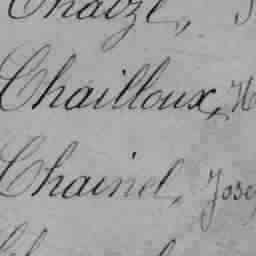 Chaize,
Chailloux, H
Chainel, Jose